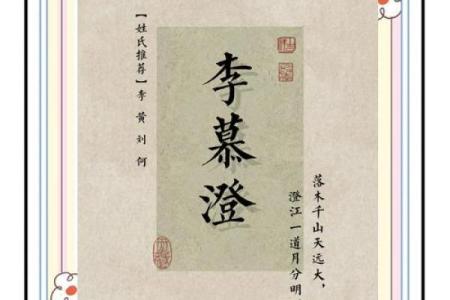 李慕澄
落木千山天远大，
澄江一道月分明
【姓氏推荐】李 黄 刘 何